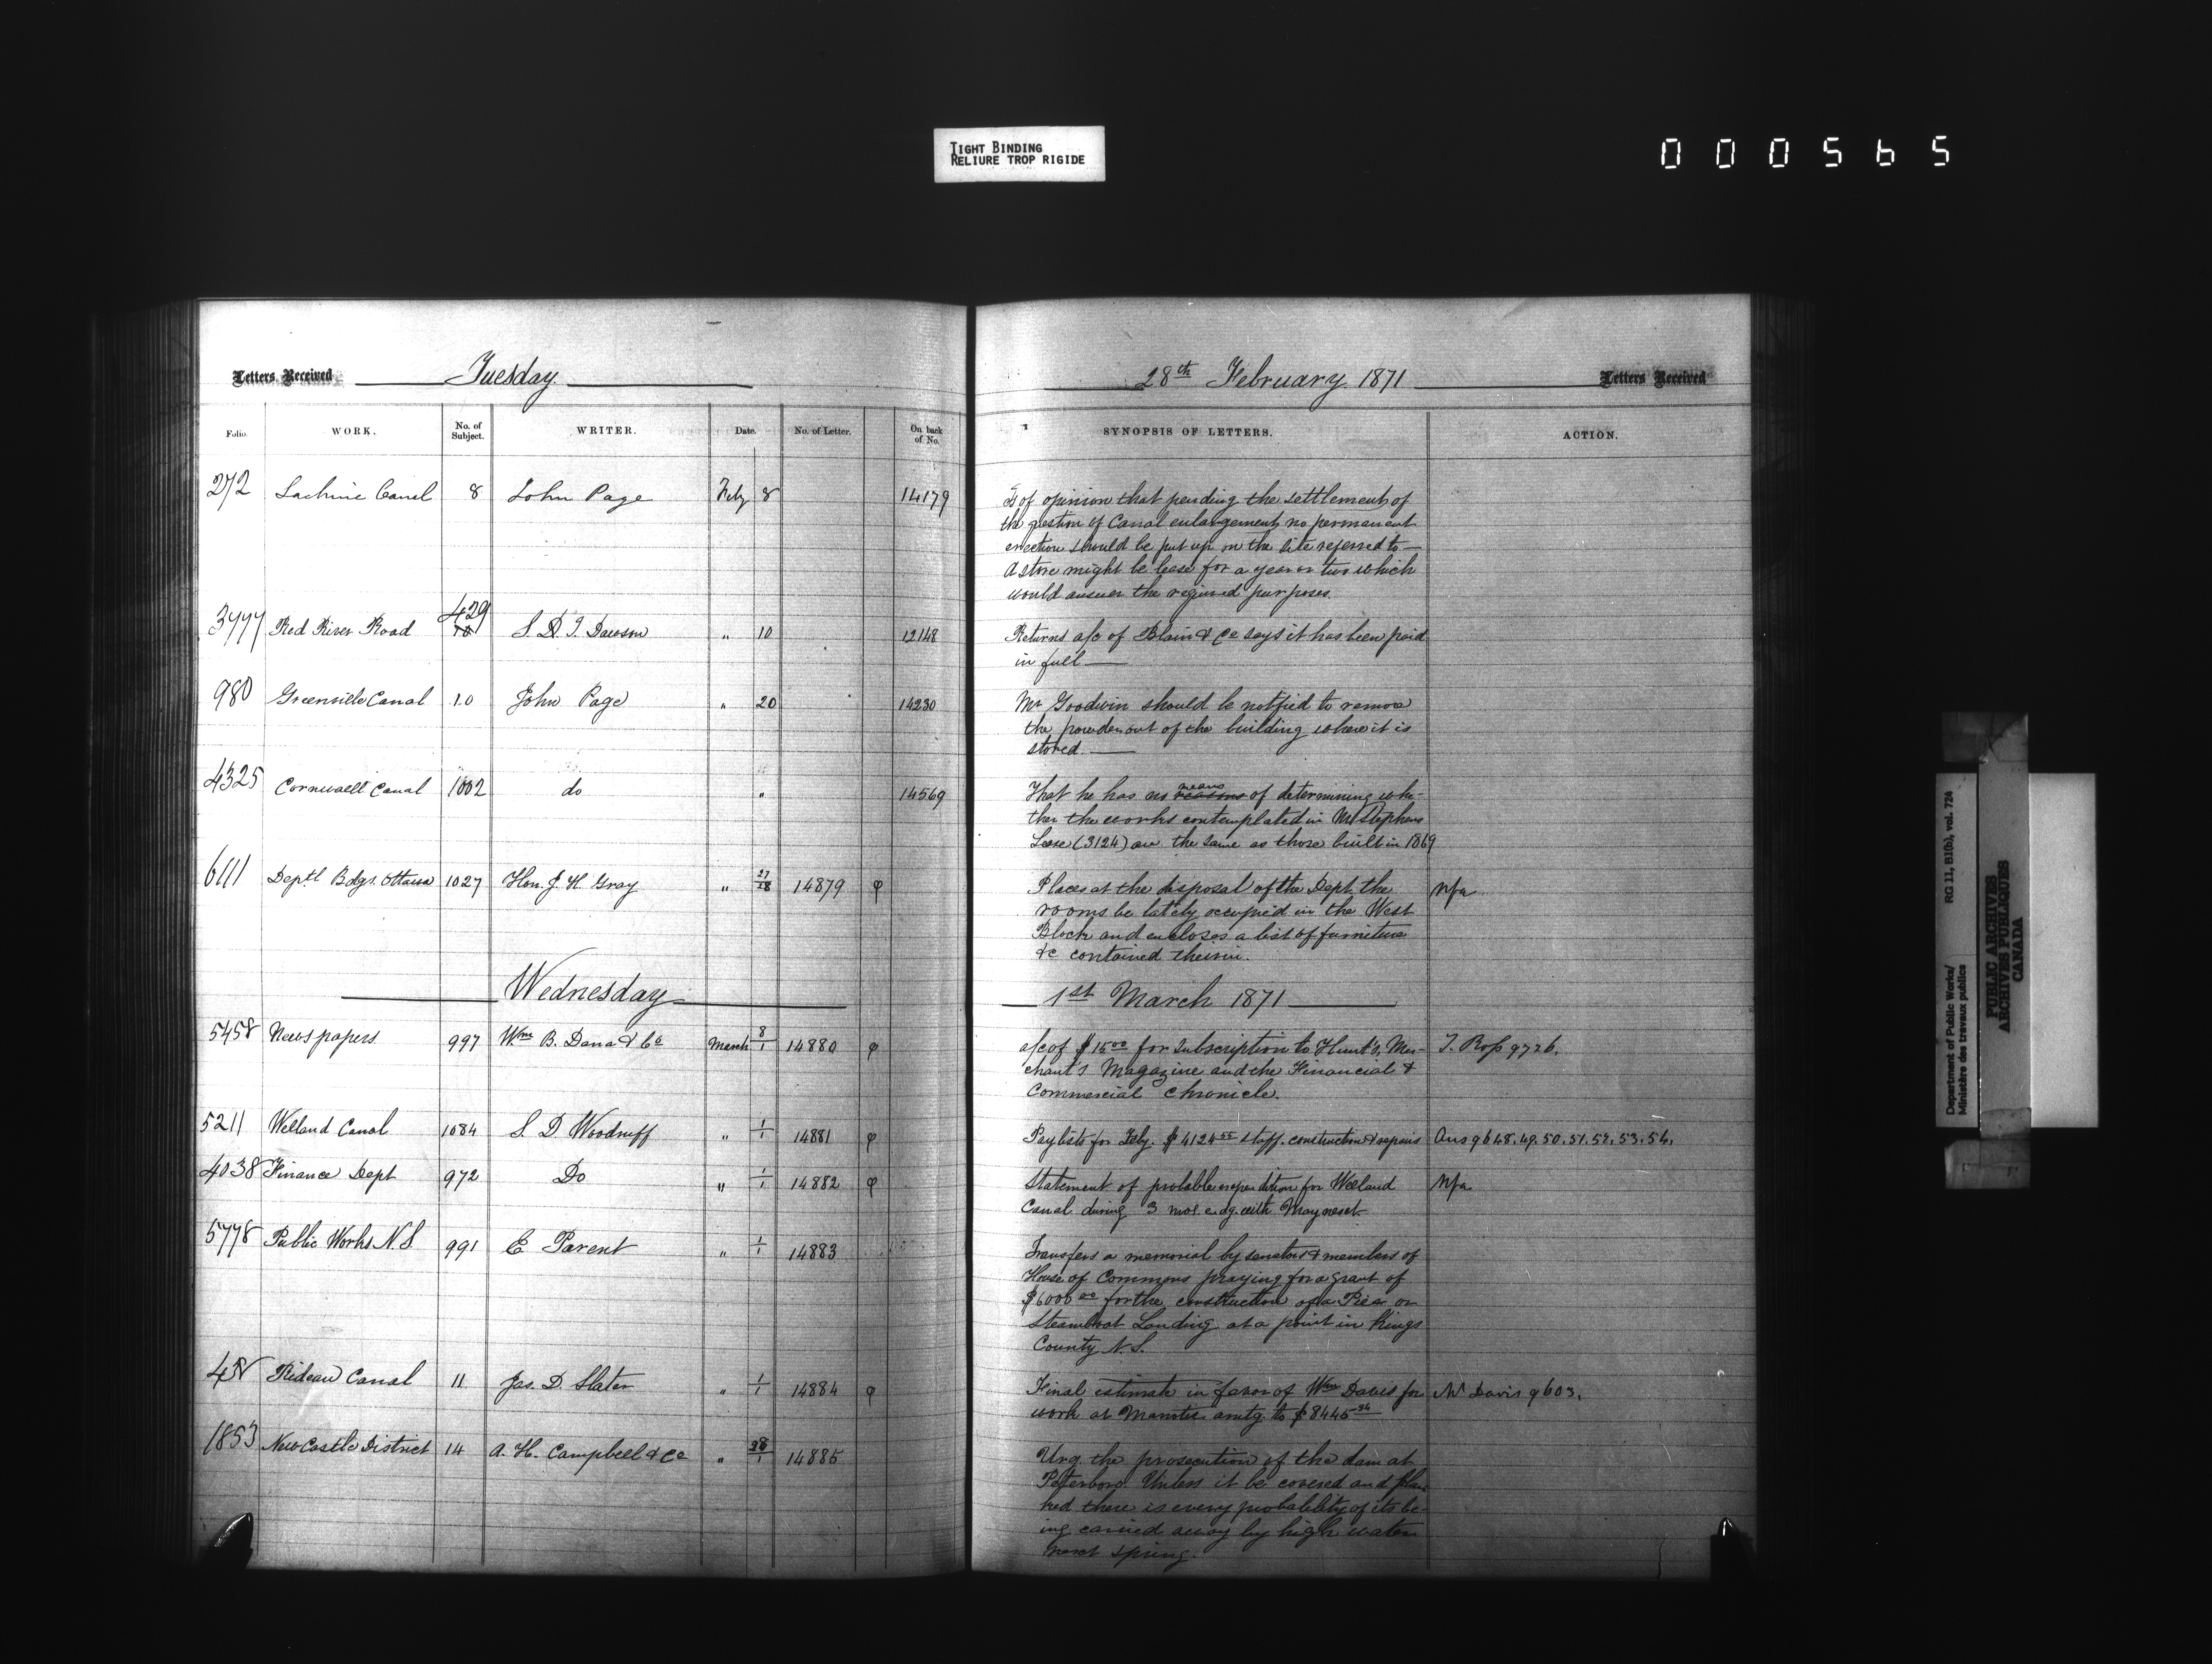 TIGHT BINDING
RELIURE TROP RIGIDE
000565
Letters Received Tuesday 28th February 1871 Letters Received
Folio. WORK. No. of Subject. WRITER. Date. No. of Letter. On back of No. SYNOPSIS OF LETTERS. ACTION.
272 Lachine Canal 8 John Page Feby 8 14179
Is of opinion that pending the settlement of
the question of Canal enlargement, no permanent
erection should be put up on the site referred to —
A store might be lease for a year or two which
would answer the required purposes.
3777 Red River Road 429 S. D. Dawson " 10 12148
Returns a/c of Blain & Co says it has been paid
in full —
980 Grenville Canal 10 John Page " 20 14230
Mr Goodwin should be notified to remove
the powder out of the building where it is
stored. —
4325 Cornwall Canal 1002 do " 14569
That he has no reasons means of determining whe-
ther the works contemplated in Mr Stephens
Lease (3124) are the same as those built in 1869
6111 Deptl Bdgs. Ottawa 1027 Hon. J. H. Gray " 27/28 14879 φ
Places at the disposal of the Dept. the Nfa
rooms he lately occupied in the West
Block and encloses a list of furniture
&c contained therein.
Wednesday 1st March 1871
5458 Newspapers 997 Wm B. Dana & Co March 8/1 14880 φ
a/c of $15 00 for subscription to Hunt's, Mer- T. Ross 9726.
chant's Magazine and the Financial &
Commercial Chronicle.
5211 Welland Canal 1084 S. D. Woodruff " 1/1 14881 φ
Paylists for Feby. $4124 55 staff. construction & repairs Ans 9648.49.50.51.52.53.54.
4038 Finance Dept 972 Do " 1/1 14882 φ
Statement of probable expendition for Welland Nfa
Canal during 3 mos. endg. with May next.
5778 Public Works N.S. 991 E Parent " 1/1 14883
Transfers a memorial by senators & members of
House of Commons praying for a grant of
$6000 00 for the construction of a Pier or
Steamboat Landing at a point in Kings
County N.S.
Rideau Canal 11 Jas. D. Slater " 1/1 14884 φ
Final estimate in favor of Wm Davis for W Davis 9603.
work at amtg. to $8445 34
1853 New Castle District 14 A. H. Campbell & Co " 28/1 14885
Urg. the prosecution of the dam at
Peterboro. Unless it be covered and plan
ked there is every probability of its be-
ing carried away by high water
next spring.
Department of Public Works/ RG 11, B1(b), vol. 724
Ministère des travaux publics
PUBLIC ARCHIVES
ARCHIVES PUBLIQUES
CANADA